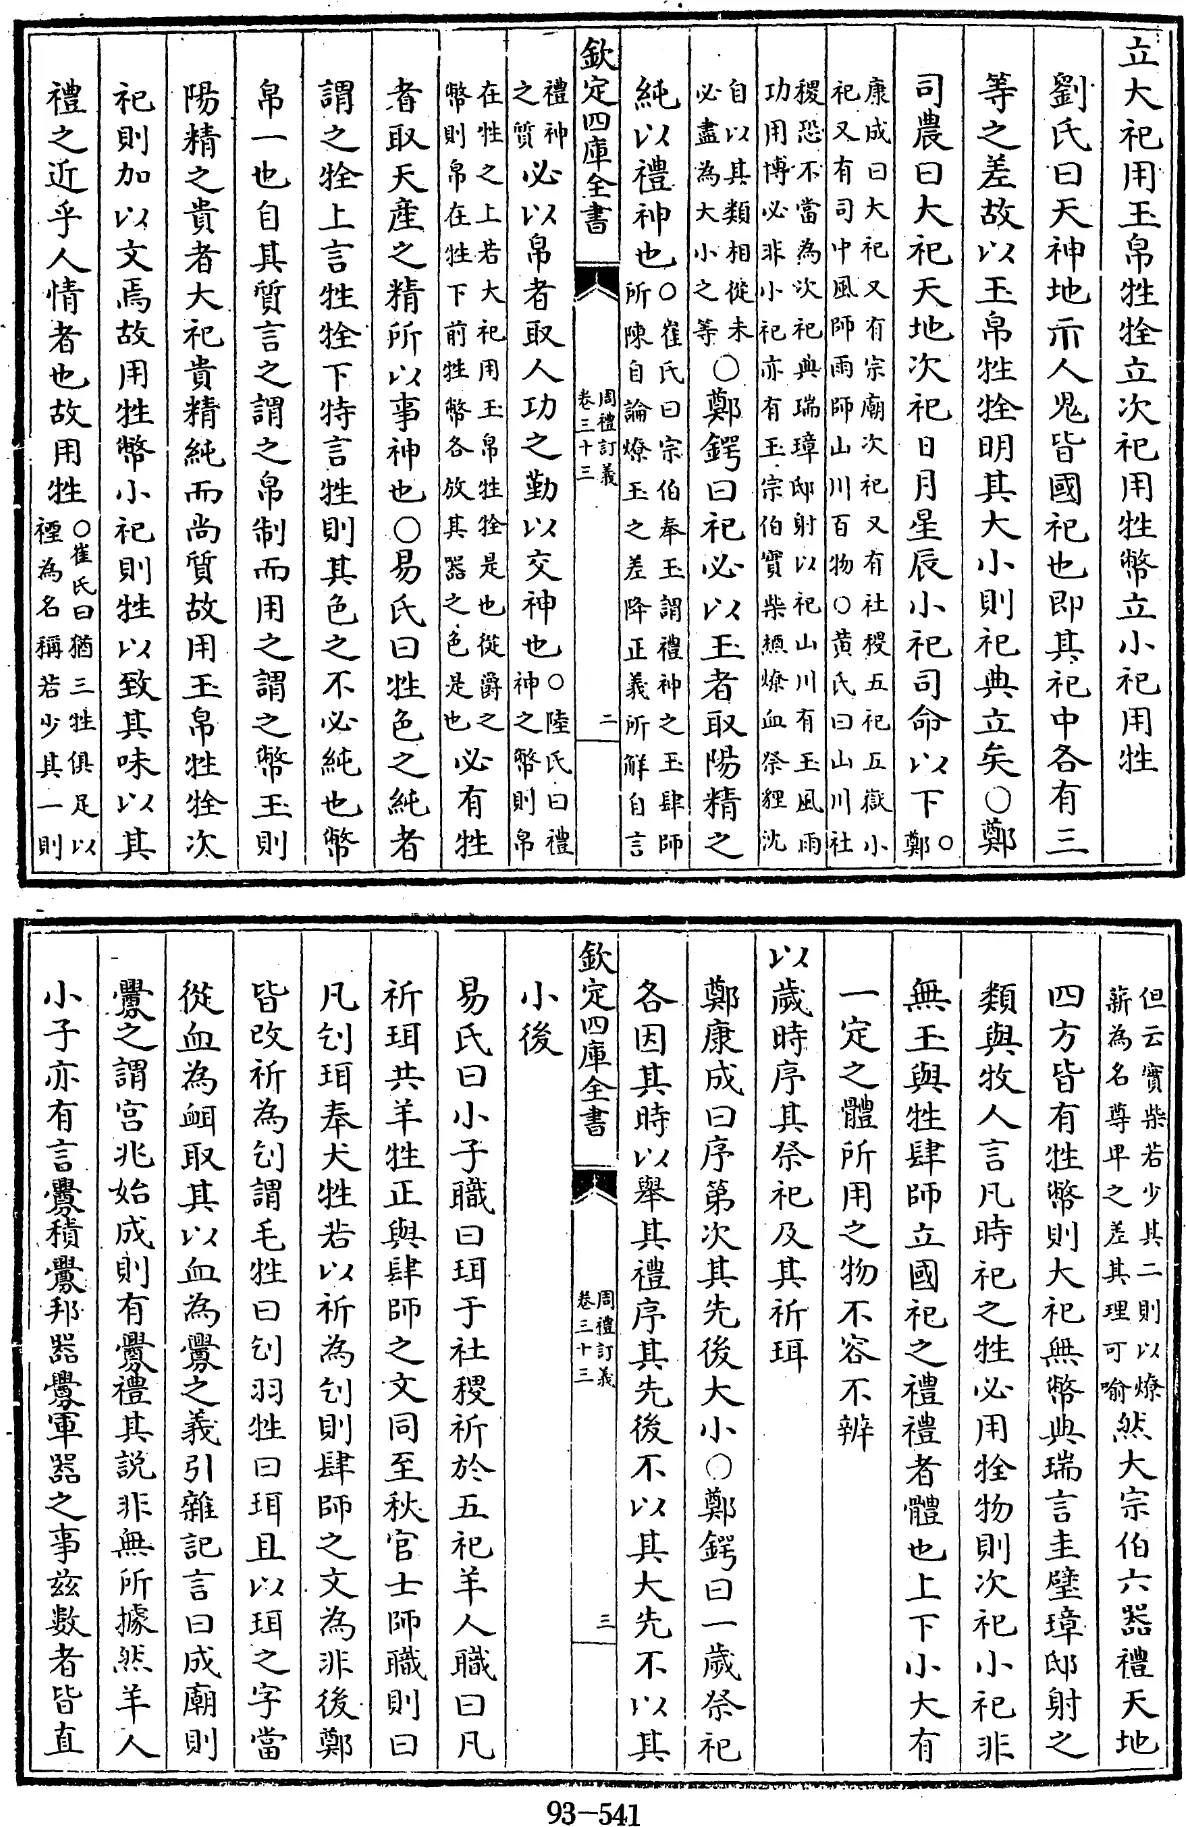 立大祀用玉帛牲牷立次祀用牲幣立小祀用牲
劉氏曰天神地示人鬼皆國祀也即其祀中各有三
等之差故以玉帛牲牷明其大小則祀典立矣○鄭
司農曰大祀天地次祀日月星辰小祀司命以下○鄭
康成曰大祀又有宗廟次祀又有社稷五祀五嶽小
祀又有司中風師雨師山川百物○黃氏曰山川社
稷恐不當為次祀典瑞璋邸射以祀山川有玉風雨
功用博必非小祀亦有玉宗伯實柴槱燎血祭貍沈
自以其類相從未必盡為大小之等○鄭鍔曰祀必以玉者取陽精之
純以禮神也○崔氏曰宗伯奉玉謂禮神之玉肆師所陳自論燎玉之差降正義所解自言
欽定四庫全書 周禮訂義 卷三十三 二
禮神之質必以帛者取人功之勤以交神也○陸氏曰禮神之幣則帛
在牲之上若大祀用玉帛牲牷是也從爵之幣則帛在牲下前牲幣各放其器之色是也必有牲
者取天產之精所以事神也○易氏曰牲色之純者
謂之牷上言牲牷下特言牲則其色之不必純也幣
帛一也自其質言之謂之帛制而用之謂之幣玉則
陽精之貴者大祀貴精純而尚質故用玉帛牲牷次
祀則加以文焉故用牲幣小祀則牲以致其味以其
禮之近乎人情者也故用牲○崔氏曰猶三牲俱足以禋為名稱若少其一則
但云實柴若少其二則以燎薪為名尊卑之差其理可喻然大宗伯六器禮天地
四方皆有牲幣則大祀無幣典瑞言圭璧璋邸射之
類與牧人言凡時祀之牲必用牷物則次祀小祀非
無玉與牲肆師立國祀之禮禮者體也上下小大有
一定之體所用之物不容不辨
以歲時序其祭祀及其祈珥
鄭康成曰序第次其先後大小○鄭鍔曰一歲祭祀
各因其時以舉其禮序其先後不以其大先不以其
欽定四庫全書 周禮訂義 卷三十三 三
小後
易氏曰小子職曰珥于社稷祈於五祀羊人職曰凡
祈珥共羊牲正與肆師之文同至秋官士師職則曰
凡刉珥奉犬牲若以祈為刉則肆師之文為非後鄭
皆改祈為刉謂毛牲曰刉羽牲曰珥且以珥之字當
從血為衈取其以血為釁之義引雜記言曰成廟則
釁之謂宮兆始成則有釁禮其說非無所據然羊人
小子亦有言釁積釁邦器釁軍器之事茲數者皆直
93-541